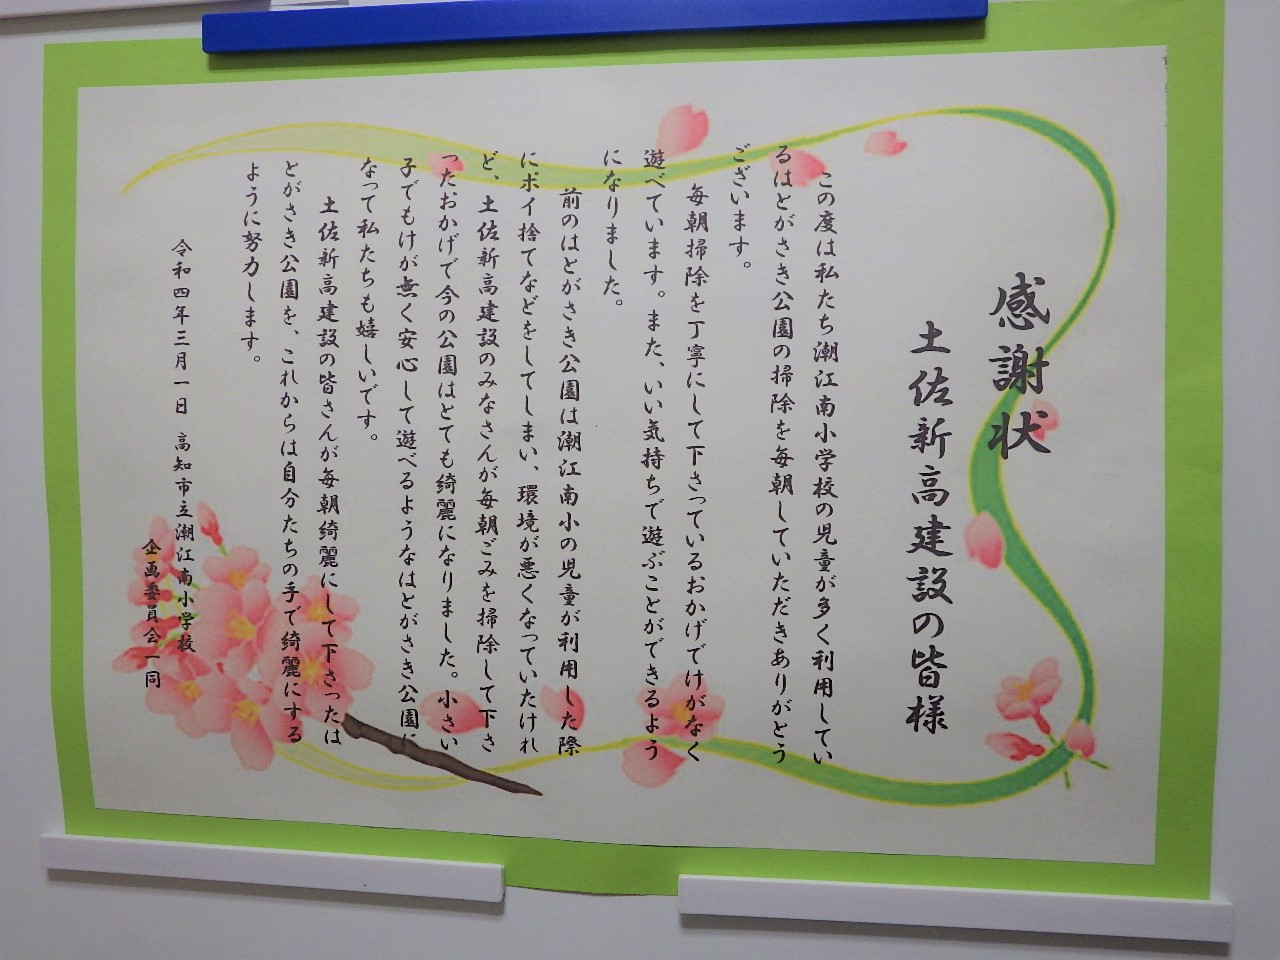 感謝状
土佐新高建設の皆様
この度は私たち潮江南小学校の児童が多く利用してい
るはとがさき公園の掃除を毎朝していただきありがとう
ございます。
毎朝掃除を丁寧にして下さっているおかげでけがなく
遊べています。また、いい気持ちで遊ぶことができるよう
になりました。
前のはとがさき公園は潮江南小の児童が利用した際
にポイ捨てなどをしてしまい、環境が悪くなっていたけれ
ど、土佐新高建設のみなさんが毎朝ごみを掃除して下さ
ったおかげで今の公園はとても綺麗になりました。小さい
子でもけが無く安心して遊べるようなはとがさき公園に
なって私たちも嬉しいです。
土佐新高建設の皆さんが毎朝綺麗にして下さったは
とがさき公園を、これからは自分たちの手で綺麗にする
ように努力します。
令和四年三月一日 高知市立潮江南小学校
企画委員会一同